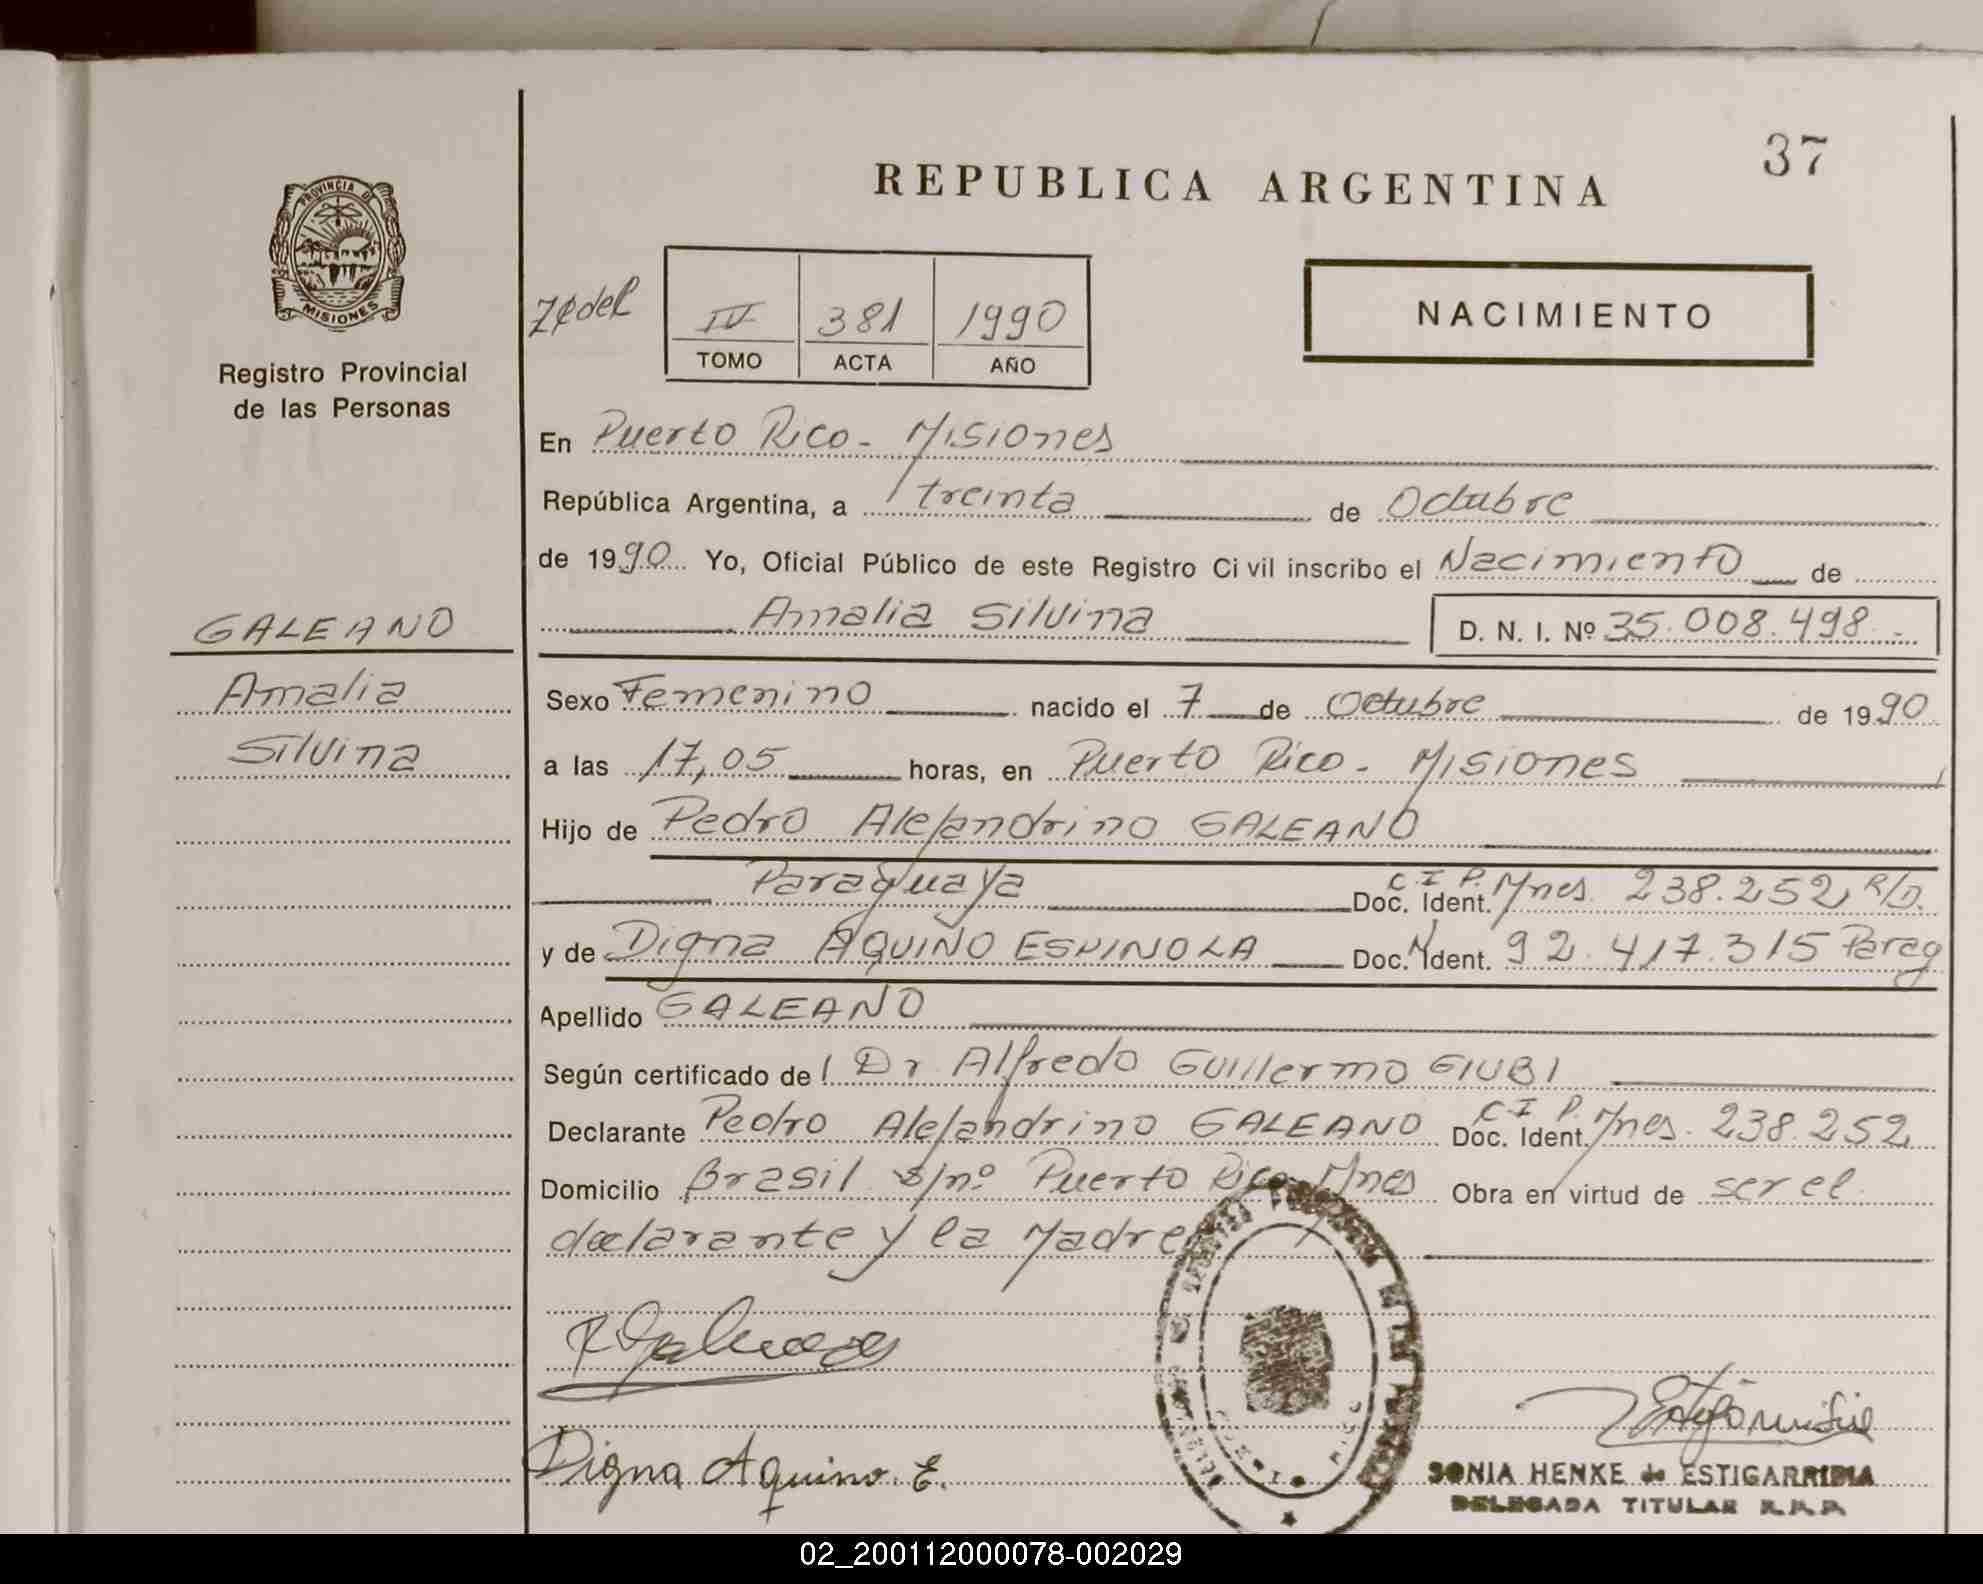 37
REPUBLICA ARGENTINA
PROVINCIA DE
MISIONES
Registro Provincial
de las Personas
IV 381 1990
TOMO ACTA AÑO
NACIMIENTO
En Puerto Rico - Misiones
República Argentina, a treinta de Octubre
de 1990 Yo, Oficial Público de este Registro Civil inscribo el Nacimiento de
Amalia Silvina D. N. I. Nº 35.008.498.-
GALEANO
Amalia
Silvina
Sexo Femenino nacido el 7 de Octubre de 1990
a las 17,05 horas, en Puerto Rico - Misiones
Hijo de Pedro Alejandrino GALEANO
Paraguaya Doc. Ident. C.I.P. Mnes. 238.252 R/D.
y de Digna AQUINO ESPINOLA Doc. Ident. 92.417.315 Parag
Apellido GALEANO
Según certificado del Dr Alfredo Guillermo GIUBI
Declarante Pedro Alejandrino GALEANO Doc. Ident. C I P. Mnes. 238.252
Domicilio Brasil s/nº Puerto Rico Mnes Obra en virtud de ser el
declarante y la Madre
Digna Aquino. E.
SONIA HENKE de ESTIGARRIBIA
DELEGADA TITULAR R.P.P.
02_200112000078-002029